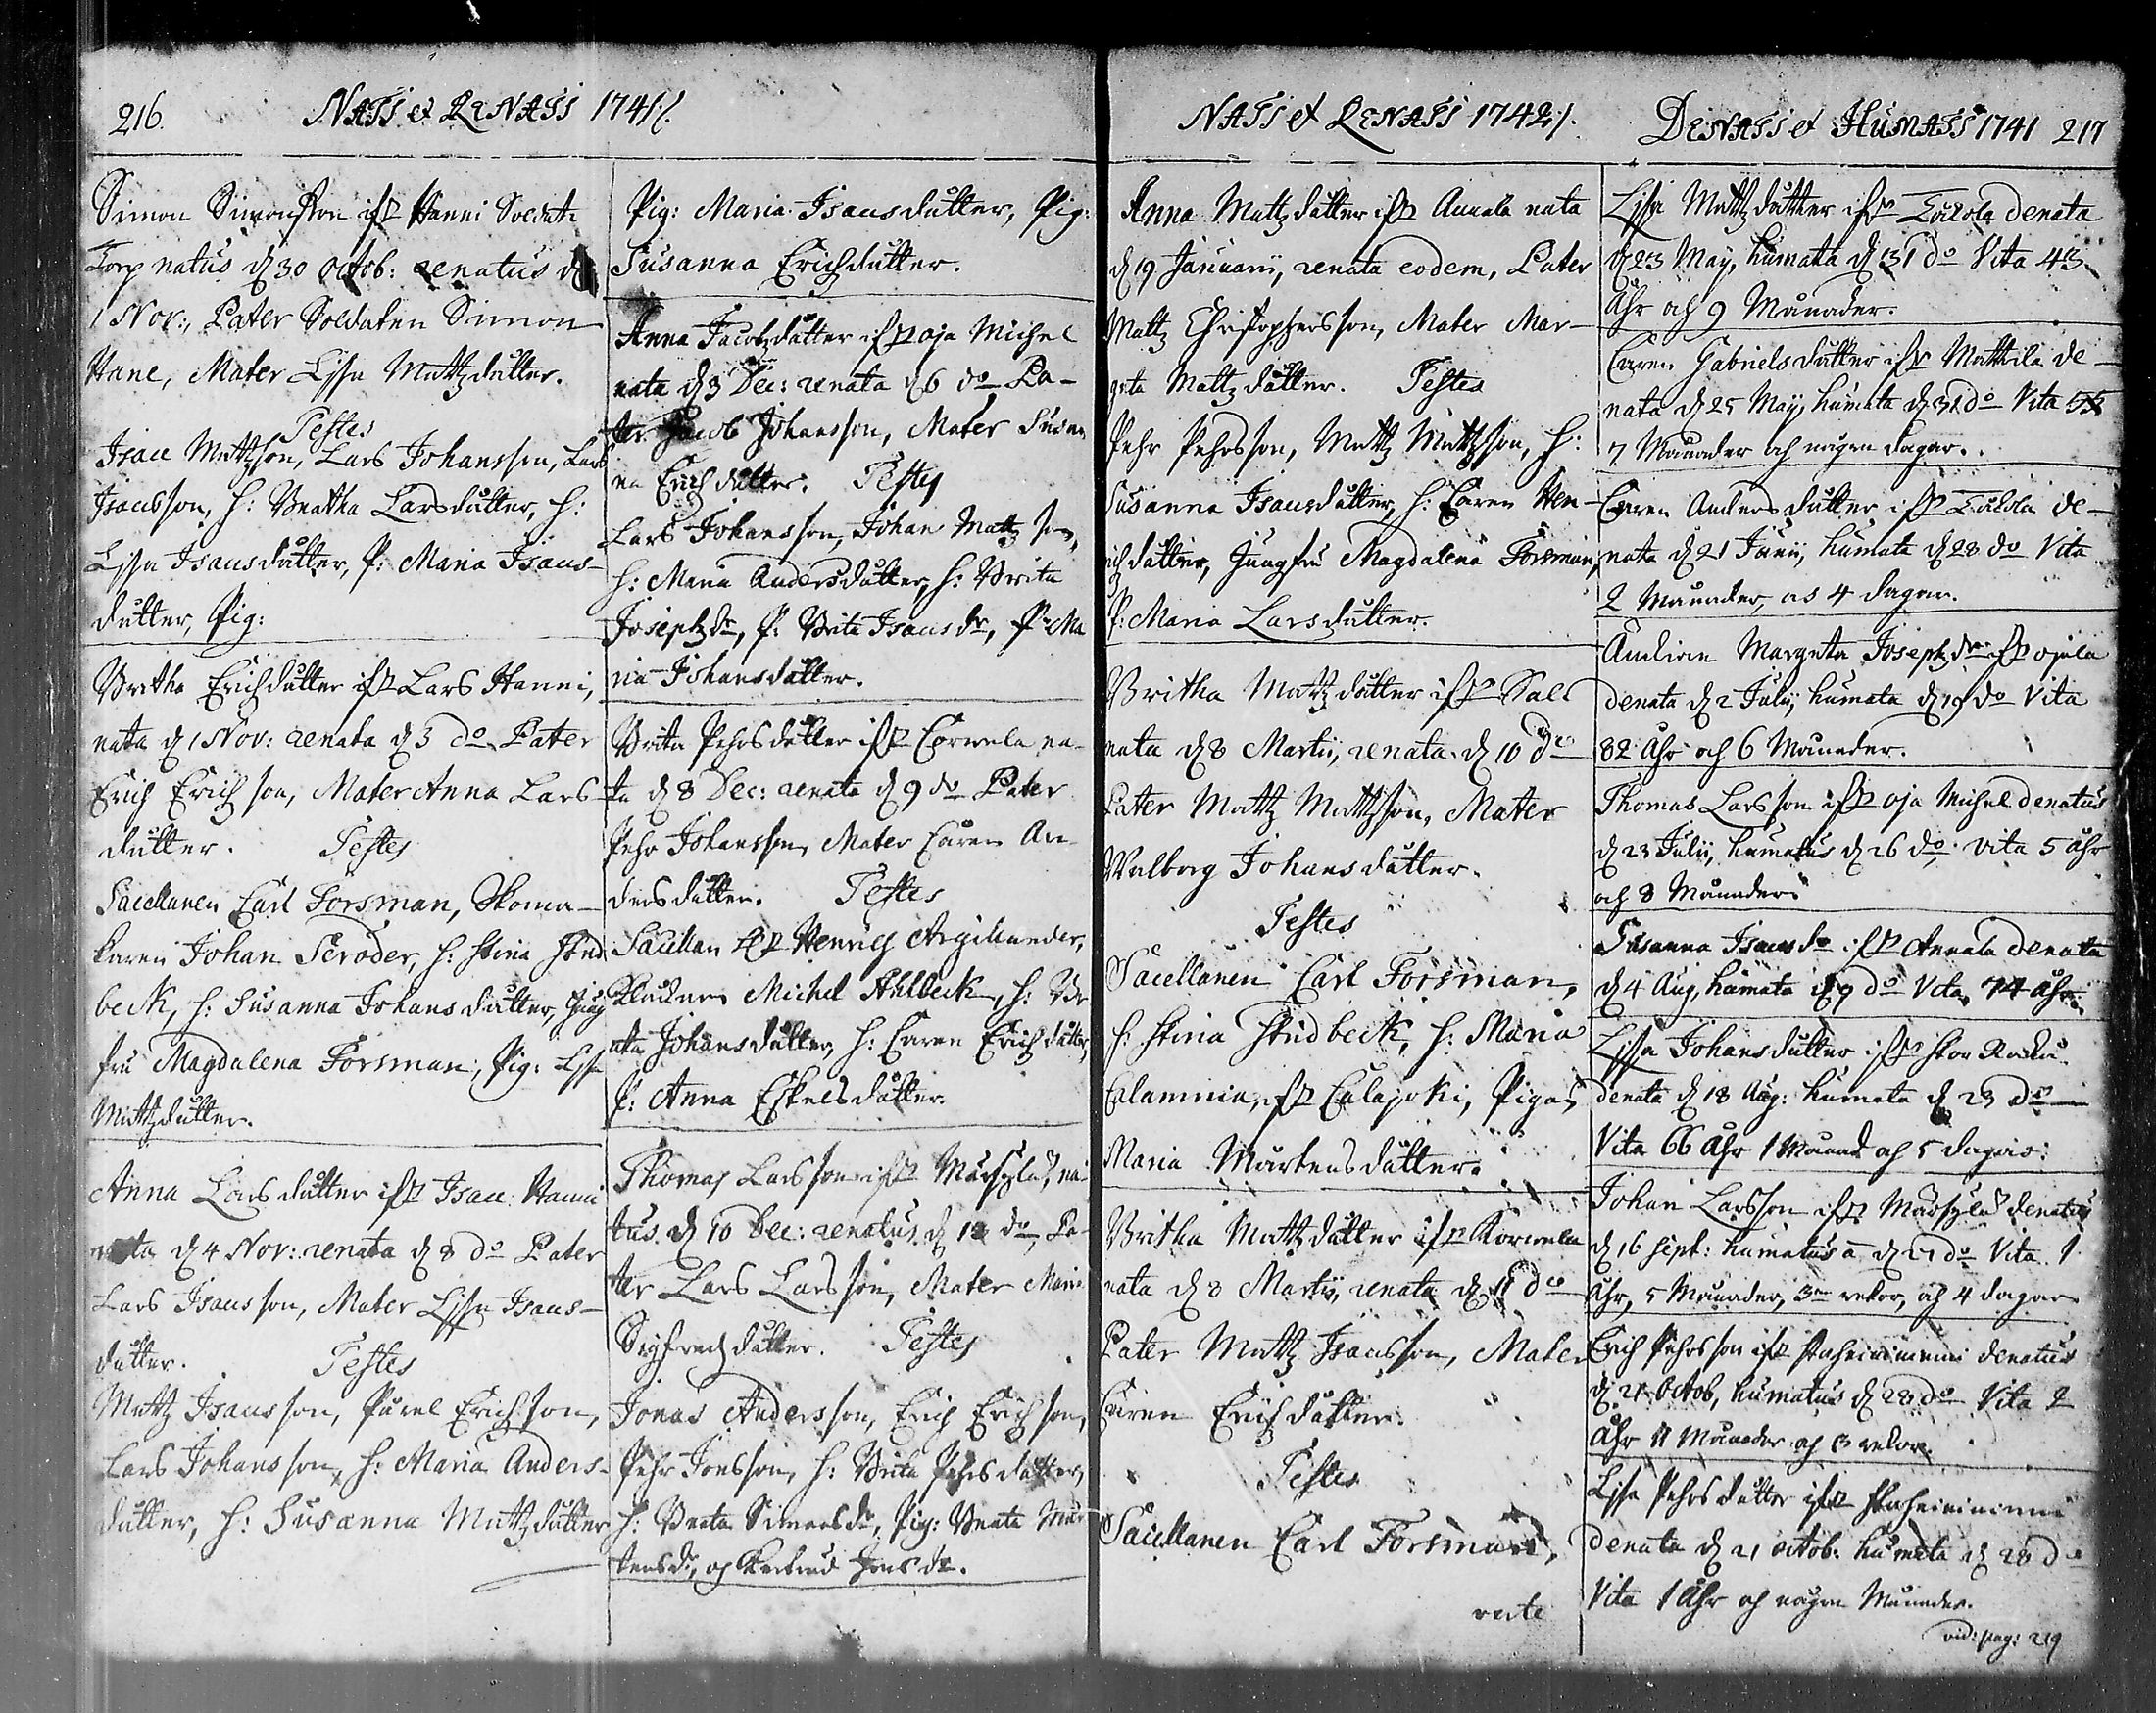 216.
NATI et RENATI 1741:/.
Simon Simonsson ifr Hanni Soldate
Torp natus d 30 Octob: renatus d
1 Nov:, Pater Soldaten Simon
Hane, Mater Lissa Mattzdåtter.
Testes
Isac Mattzson, Lars Johansson, Lars
Isacsson, h: Beatha Larsdåtter, h:
Lissa Isacsdåtter, P: Maria Isacs-
dåtter, Pig:
Britha Erichdåtter ifr Lars Hanni,
nata d 1 Nov: renata d 3 do Pater
Erich Erichson, Mater Anna Lars-
dåtter. Testes
Sacellanen Carl Forsman, Skoma-
karen Johan Scroder, h: Stina Stud
beck, h: Susanna Johansdåtter, Jung
fru Magdalena Forsman, Pig: Lissa
Mattzdåtter.
Anna Larsdåtter ifr Isac Hanni
nata d 4 Nov: renata d 8 do Pater
Lars Isacsson, Mater Lissa Isacs-
dåtter. Testes
Mattz Isacsson, Påvel Erichson,
Lars Johansson, h: Maria Anders-
dåtter, h: Susanna Mattzdåtter
Pig: Maria Isacsdåtter, Pig:
Susanna Erichdåtter.
Anna Jacobzdåtter ifr Oja Michel
nata d 3 Dec: renata d 6 do Pa-
ter Jacob Johansson, Mater Susan
na Erichdåtter. Testes
Lars Johansson, Johan Mattzson,
h: Maria Andersdåtter, h: Brita
Josephzdr, P: Brita Isacsdr, P: Ma
ria Johansdåtter.
Brita Pehrsdåtter ifr Corwela na-
ta d 8 Dec: renata d 9 do Pater
Pehr Johansson, Mater Caren An-
dersdåtter. Testes
Sacellan Hr Henrich Argillander,
Klockaren Michel Ahlbeck, h: Be
ata Johansdåtter, h: Caren Erichdåtter,
P: Anna Eskelsdåtter.
Thomas Larsson ifr Märsylä, na-
tus d 10 Dec: renatus d 12 do, Pa-
ter Lars Larsson, Mater Maria
Sigfredzdåtter. Testes
Jonas Andersson, Erich Erichson,
Pehr Jonsson, h: Brita Pehrsdåtter,
h: Beata Simonsdr, Pig: Beata Mår
tensdr, och Gertrud Jonsdr.
NATI et RENATI 1742:/.
Anna Mattzdåtter ifr Annala nata
d 19 Januarii, renata eodem, Pater
Mattz Christophersson, Mater Mar-
geta Mattzdåtter. Testes
Pehr Pehrsson, Mattz Mattzson, h:
Susanna Isacsdåtter, h: Caren Hen-
richdåtter, Jungfru Magdalena Forsman,
P: Maria Larsdåtter.
Britha Mattzdåtter ifr Sals
nata d 8 Martii, renata d 10 do
Pater Mattz Mattzson, Mater
Walborg Johansdåtter.
Testes
Sacellanen Carl Forsman,
h: Stina Studbeck, h: Maria
Calamnia, ifr Calajoki, Pigan
Maria Mårtensdåtter.
Britha Mattzdåtter ifr Korwela
nata d 8 Martii, renata d 11 do
Pater Mattz Isacsson, Mater
Caren Erichdåtter.
Testes
Sacellanen Carl Forsman,
verte
DENATI et HUMATI 1741 217
Lissa Mattzdåtter ifr Tåkola denata
d 23 May, humata d 31 do Vita 43
Åhr och 9 Månader.
Caren Gabrielsdåtter ifr Mattila de-
nata d 25 May, humata d 31 do Vita
7 Månader och någon dagar.
Caren Andersdåtter ifr Tåkola de-
nata d 21 Junii, humata d 28 do Vita
2 Månader, os 4 dagar.
Änckian Margeta Josephzdr ifr Ojala
denata d 2 Julii, humata d 19 do Vita
82 Åhr och 6 Månader.
Thomas Larsson ifr Oja Michel denatus
d 23 Julii, humatus d 26 do. Vita 5 Åhr
och 8 Månader.
Susanna Isacsdr ifr Annala denata
d 4 Aug, humata d 9 do Vita 74 Åhr.
Lissa Johansdåtter ifr Stor
denata d 18 Aug: humata d 23 do
Vita 66 Åhr 1 Månad och 5 dagar.
Johan Larsson ifr Märsylä denatus
d 16 Sept: humatus d 21 do Vita 1
Åhr, 5 Månader, 3 vekor, och 4 dagar
Erich Pehrsson ifr denatus
d 21 Octob, humatus d 28 do Vita 2
Åhr 11 Månader och 3 vekor.
Lissa Pehrsdåtter ifr
denata d 21 Octob: humata d 28 do
Vita 1 Åhr och någre Månader.
vid: pag: 219